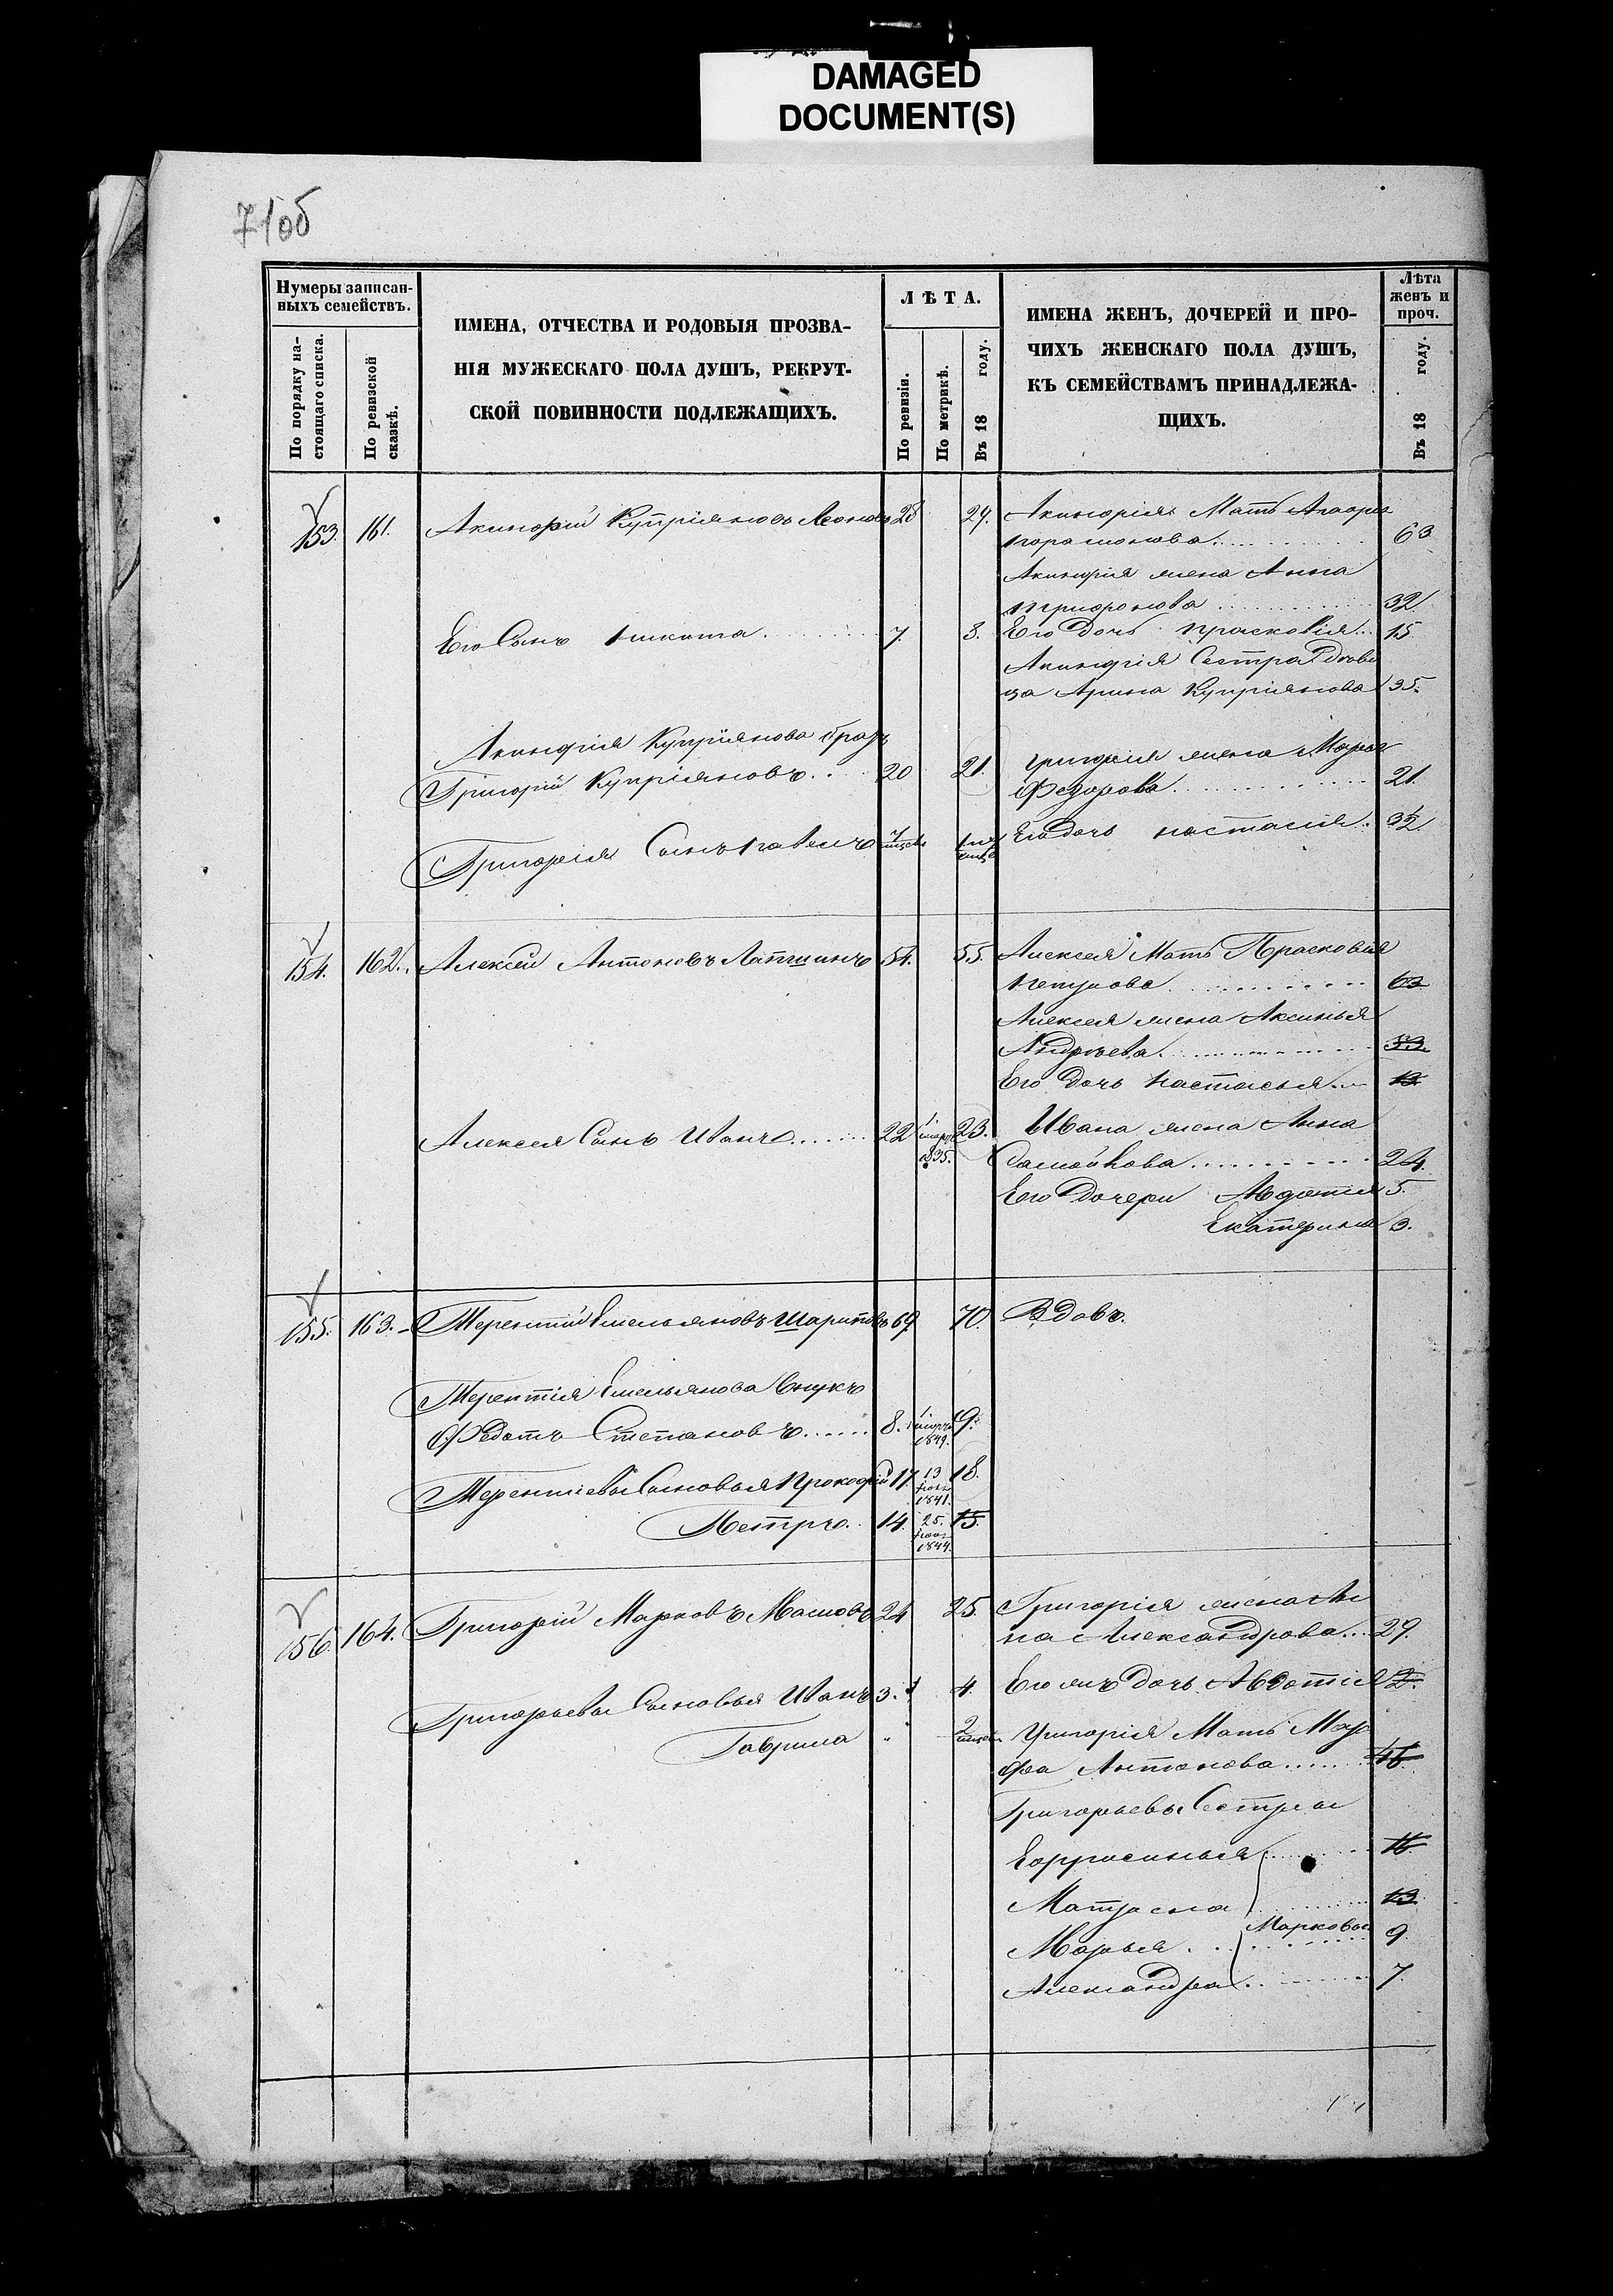 DAMAGED
DOCUMENT(S)
71об
Нумеры записан-
ныхъ семействъ.
По порядку на-
стоящаго списка.
По ревизской
сказкѣ.
ИМЕНА, ОТЧЕСТВА И РОДОВЫЯ ПРОЗВА-
НІЯ МУЖЕСКАГО ПОЛА ДУШЪ, РЕКРУТ-
СКОЙ ПОВИННОСТИ ПОДЛЕЖАЩИХЪ.
ЛѢТА.
По ревизіи.
По метрикѣ.
Въ 18 году.
ИМЕНА ЖЕНЪ, ДОЧЕРЕЙ И ПРО-
ЧИХЪ ЖЕНСКАГО ПОЛА ДУШЪ,
КЪ СЕМЕЙСТВАМЪ ПРИНАДЛЕЖА-
ЩИХЪ.
Лѣта
женъ и
проч.
Въ 18 году.
153. 161. Акинфій Купріяновъ Леоновъ 28 29. Акинфія Мать
63
Акинфія жена Анна
Трифонова 32
Его Сынъ Никита 7. 8. Его Дочь Прасковія 15.
Акинфія Сестра Вдови
ца Арина Купріянова 35.
Акинфія Купріянова братъ
Григорій Купріяновъ 20 21. Григорія жена Марья
Федорова 21.
Григорія Сынъ Павелъ 7 мѣсяц Его дочь Настасія
154. 162. Алексѣй Антоновъ Лапшинъ 54. 55. Алексея Мать Прасковія
63
Алексея жена Аксинья
Андреева 53.
Его Дочь Настасья 13
Алексея Сынъ Иванъ 22 1 1835. 23. Ивана жена Анна
Самойлова 24.
Его Дочери Авдотія 5.
Екатерина 3.
155. 163. Терентій Емельяновъ Шариповъ 69 70. Вдовъ.
Терентія Емельянова Внукъ
Федотъ Степановъ 8. 1 1849. 9.
Терентіевы Сыновья Прокофій 17. 13 1841. 18.
Петръ 14. 25. 1844. 15.
156. 164. Григорій Марковъ Масловъ 24 25. Григорія жена Ан
на Александрова 29.
Григорьевы Сыновья Иванъ 3. 4. Его жъ дочь Авдотія 2.
Гаврила " 2 мѣсяц Григорія Мать Мар
фа Антонова 46.
Григорьевы Сестры
Ефросинья 16.
Матрена 13.
Марковы
Марья 9.
Александра 7.